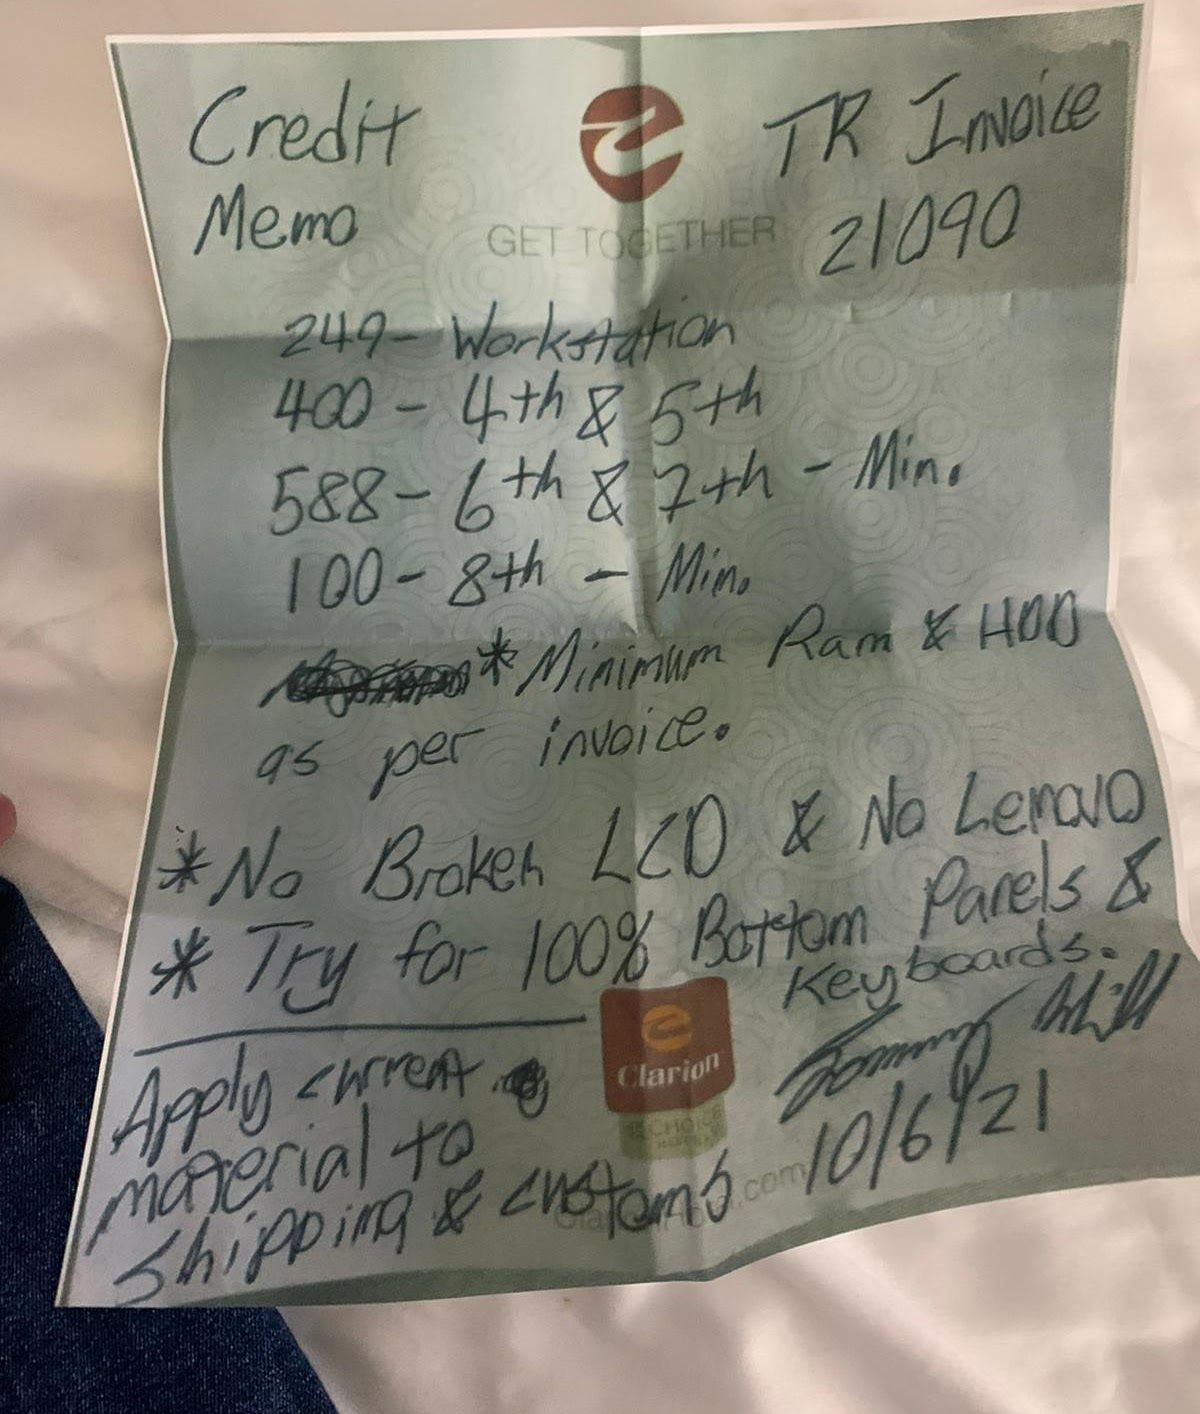 Credit
Memo
TR Invoice
21090
GET TOGETHER
249- Workstation
400 - 4th & 5th
588- 6th & 7th - Min.
100- 8th - Min.
* Minimum Ram & HDD
as per invoice.
* No Broken LCD & No Lenovo
* Try for 100% Bottom Panels &
Keyboards.
Apply current
material to
shipping & customs
Clarion
CHOICE
.com
10/6/21